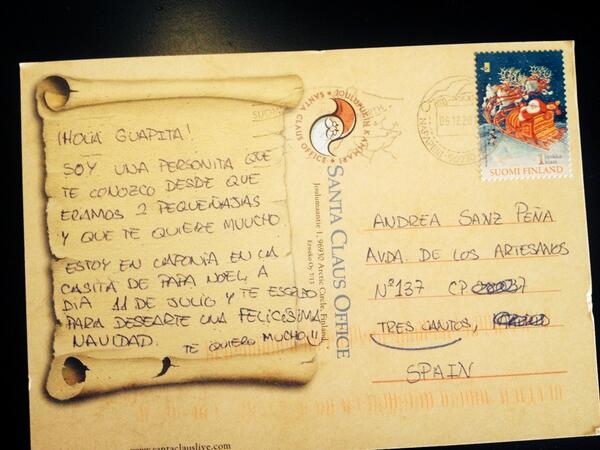 ¡HOLA GUAPITA!
SOY UNA PERSONITA QUE
TE CONOZCO DESDE QUE
ERAMOS 2 PEQUEÑAJAS
Y QUE TE QUIERE MUUCHO.
ESTOY EN LAPONIA EN LA
CASITA DE PAPA NOEL, A
DIA 11 DE JULIO Y TE ESCRIBO
PARA DESEARTE UNA FELICISIMA
NAVIDAD.
TE QUIERO MUCHO!!
www.santaclauslive.com
SANTA CLAUS OFFICE
Joulumaantie 1, 96930 Arctic Circle, Finland
JOULUPUKIN KAMMARI
SANTA CLAUS OFFICE
09.12.20
1 luokka
klass
SUOMI FINLAND
ANDREA SANZ PEÑA
AVDA. DE LOS ARTESANOS
Nº137 CP
TRES CANTOS,
SPAIN